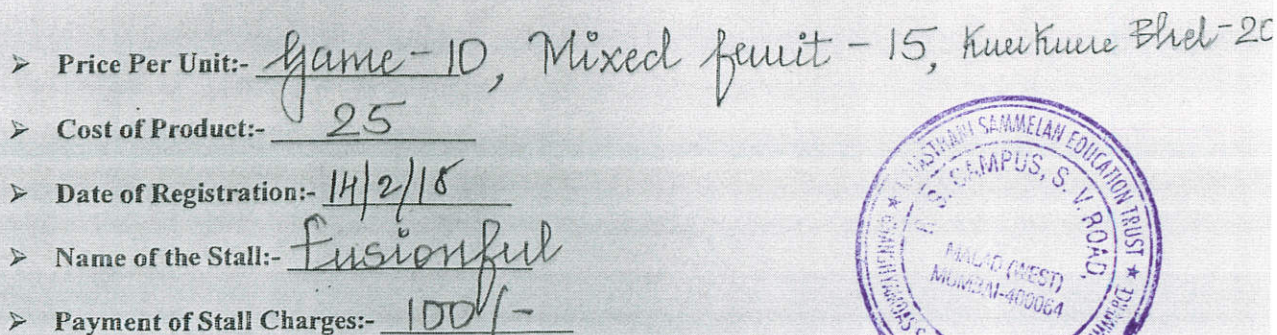 ➢ Price Per Unit:- Game - 10, Mixed fruit - 15, KurKure Bhel - 20
➢ Cost of Product:- 25
➢ Date of Registration:- 14/2/18
➢ Name of the Stall:- Fusionful
➢ Payment of Stall Charges:- 100/-
SAMMELAN EDUCATION TRUST ★
CAMPUS, S. V. ROAD,
MALAD (WEST)
MUMBAI-400064